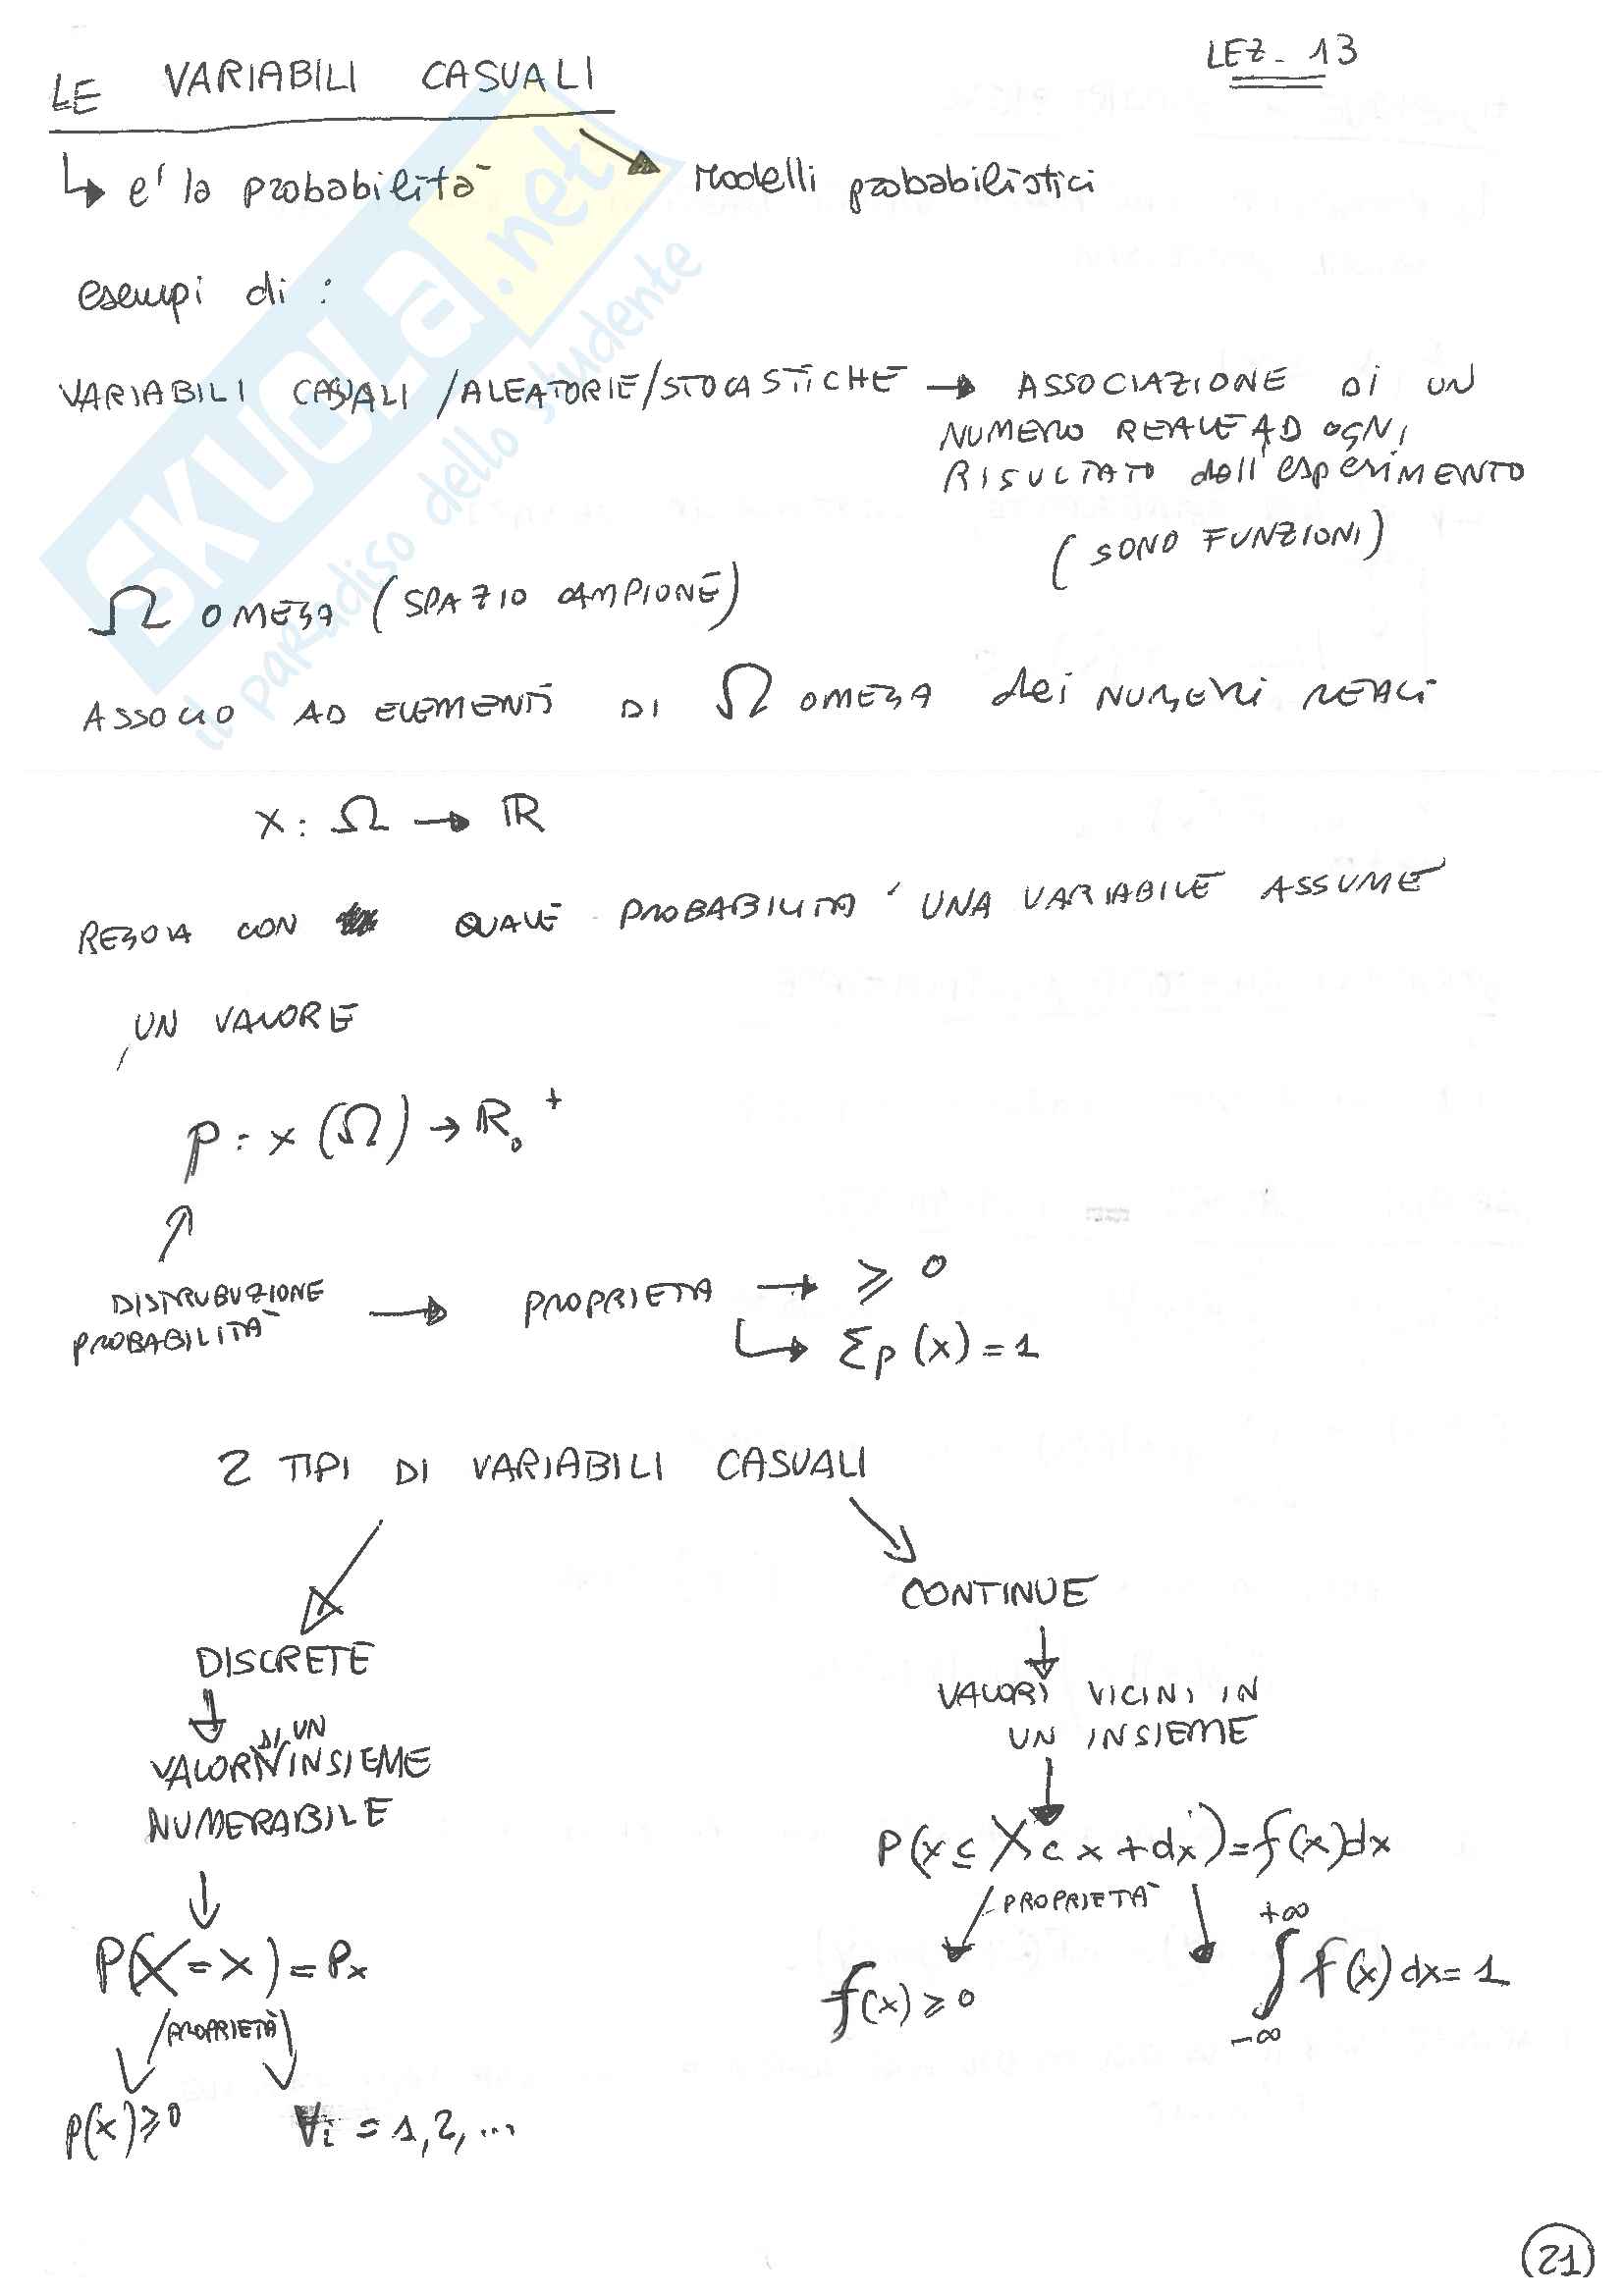 LEZ. 13
LE VARIABILI CASUALI
↳ e' la probabilità → Modelli probabilistici
esempi di :
VARIABILI CASUALI /ALEATORIE/STOCASTICHE → ASSOCIAZIONE DI UN
NUMERO REALE AD OGNI
RISULTATO dell'esperIMENTO
( SONO FUNZIONI)
Ω OMEGA (SPAZIO CAMPIONE)
ASSOCIO AD ELEMENTI DI Ω OMEGA dei NUMERI REALI
X: Ω → ℝ
REGOLA CON QUALE PROBABILITÀ UNA VARIABILE ASSUME
UN VALORE
p: x (Ω) → ℝ₀⁺
DISTRUBUZIONE
PROBABILITÀ → PROPRIETÀ → ≥ 0
↳ Σp (x) = 1
2 TIPI DI VARIABILI CASUALI
CONTINUE
DISCRETE
VALORI VICINI IN
UN INSIEME
DI UN
VALORI INSIEME
NUMERABILE
P(x ≤ X < x + dx) = f(x)dx
PROPRIETÀ
P(X = x) = Px
f(x) ≥ 0
+∞
∫ f(x) dx = 1
-∞
PROPRIETÀ
p(x) ≥ 0 ∀i = 1, 2, ...
21
SKUOLA.net
il paradiso dello studente